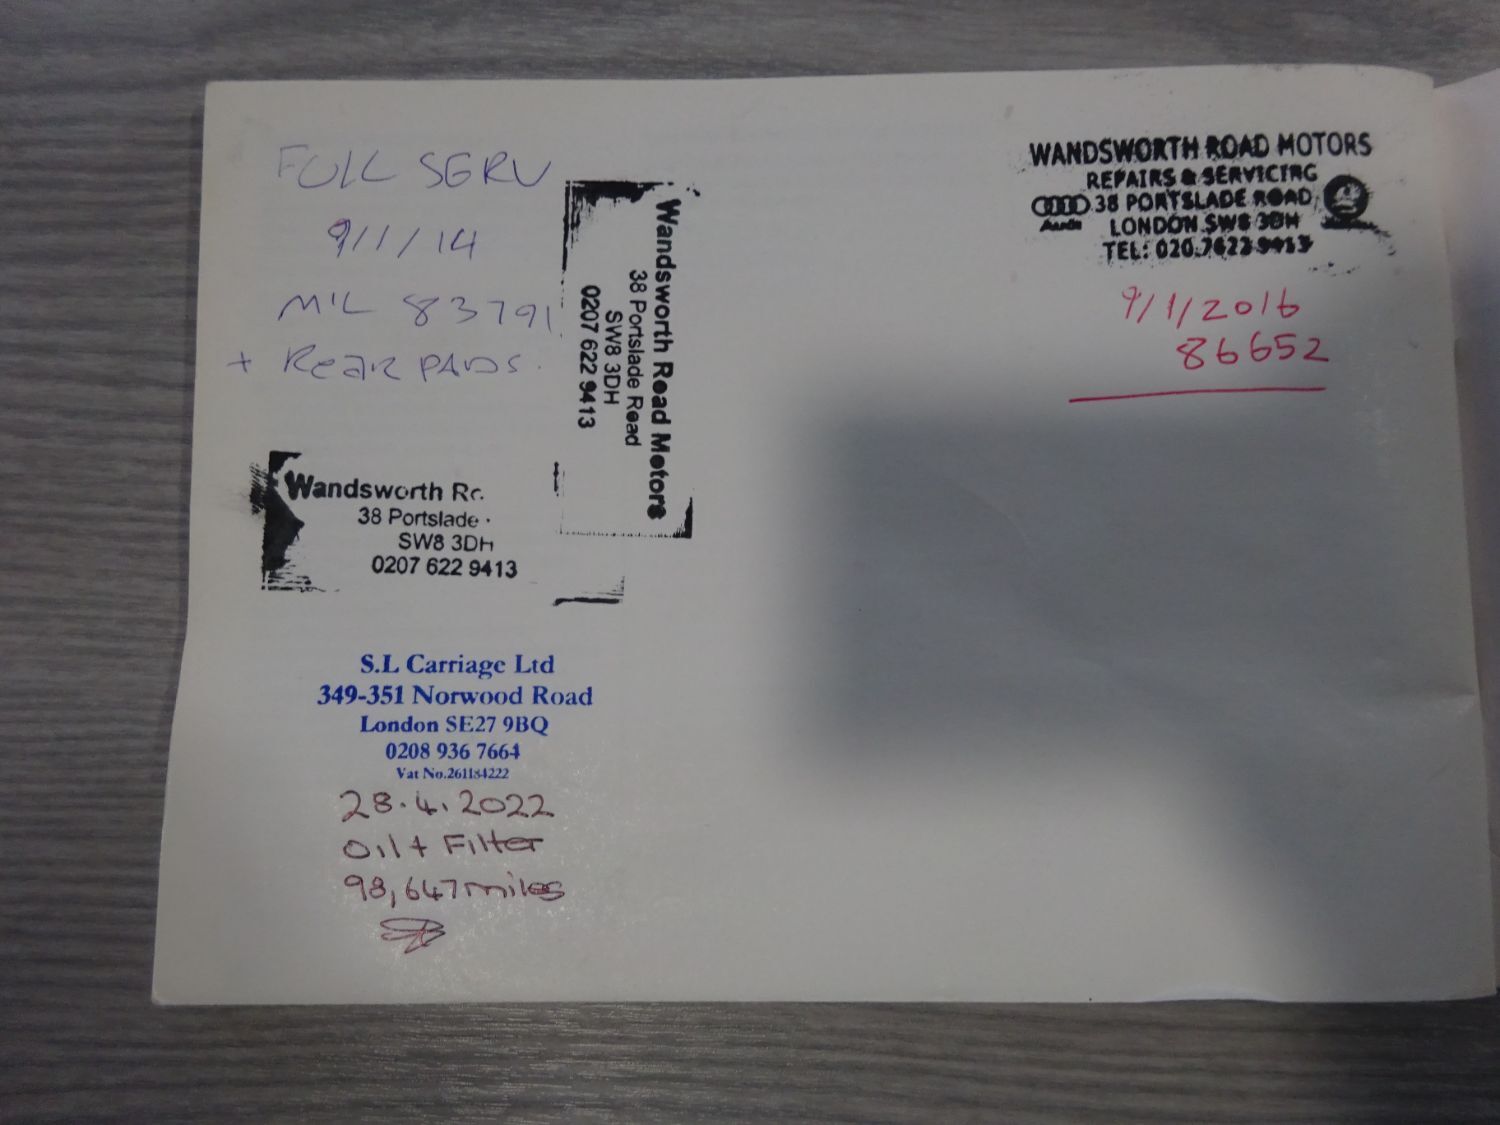 FULL SERV
9/1/14
MIL 83791
+ REAR PADS.
Wandsworth Road Motors
38 Portslade Road
SW8 3DH
0207 622 9413
Wandsworth Ro
38 Portslade
SW8 3DH
0207 622 9413
S.L Carriage Ltd
349-351 Norwood Road
London SE27 9BQ
0208 936 7664
Vat No.261184222
28.4.2022
Oil + Filter
98,647 miles
WANDSWORTH ROAD MOTORS
REPAIRS & SERVICING
38 PORTSLADE ROAD
Audi
LONDON SW8 3DH
TEL: 020 7622 9413
9/1/2016
86652